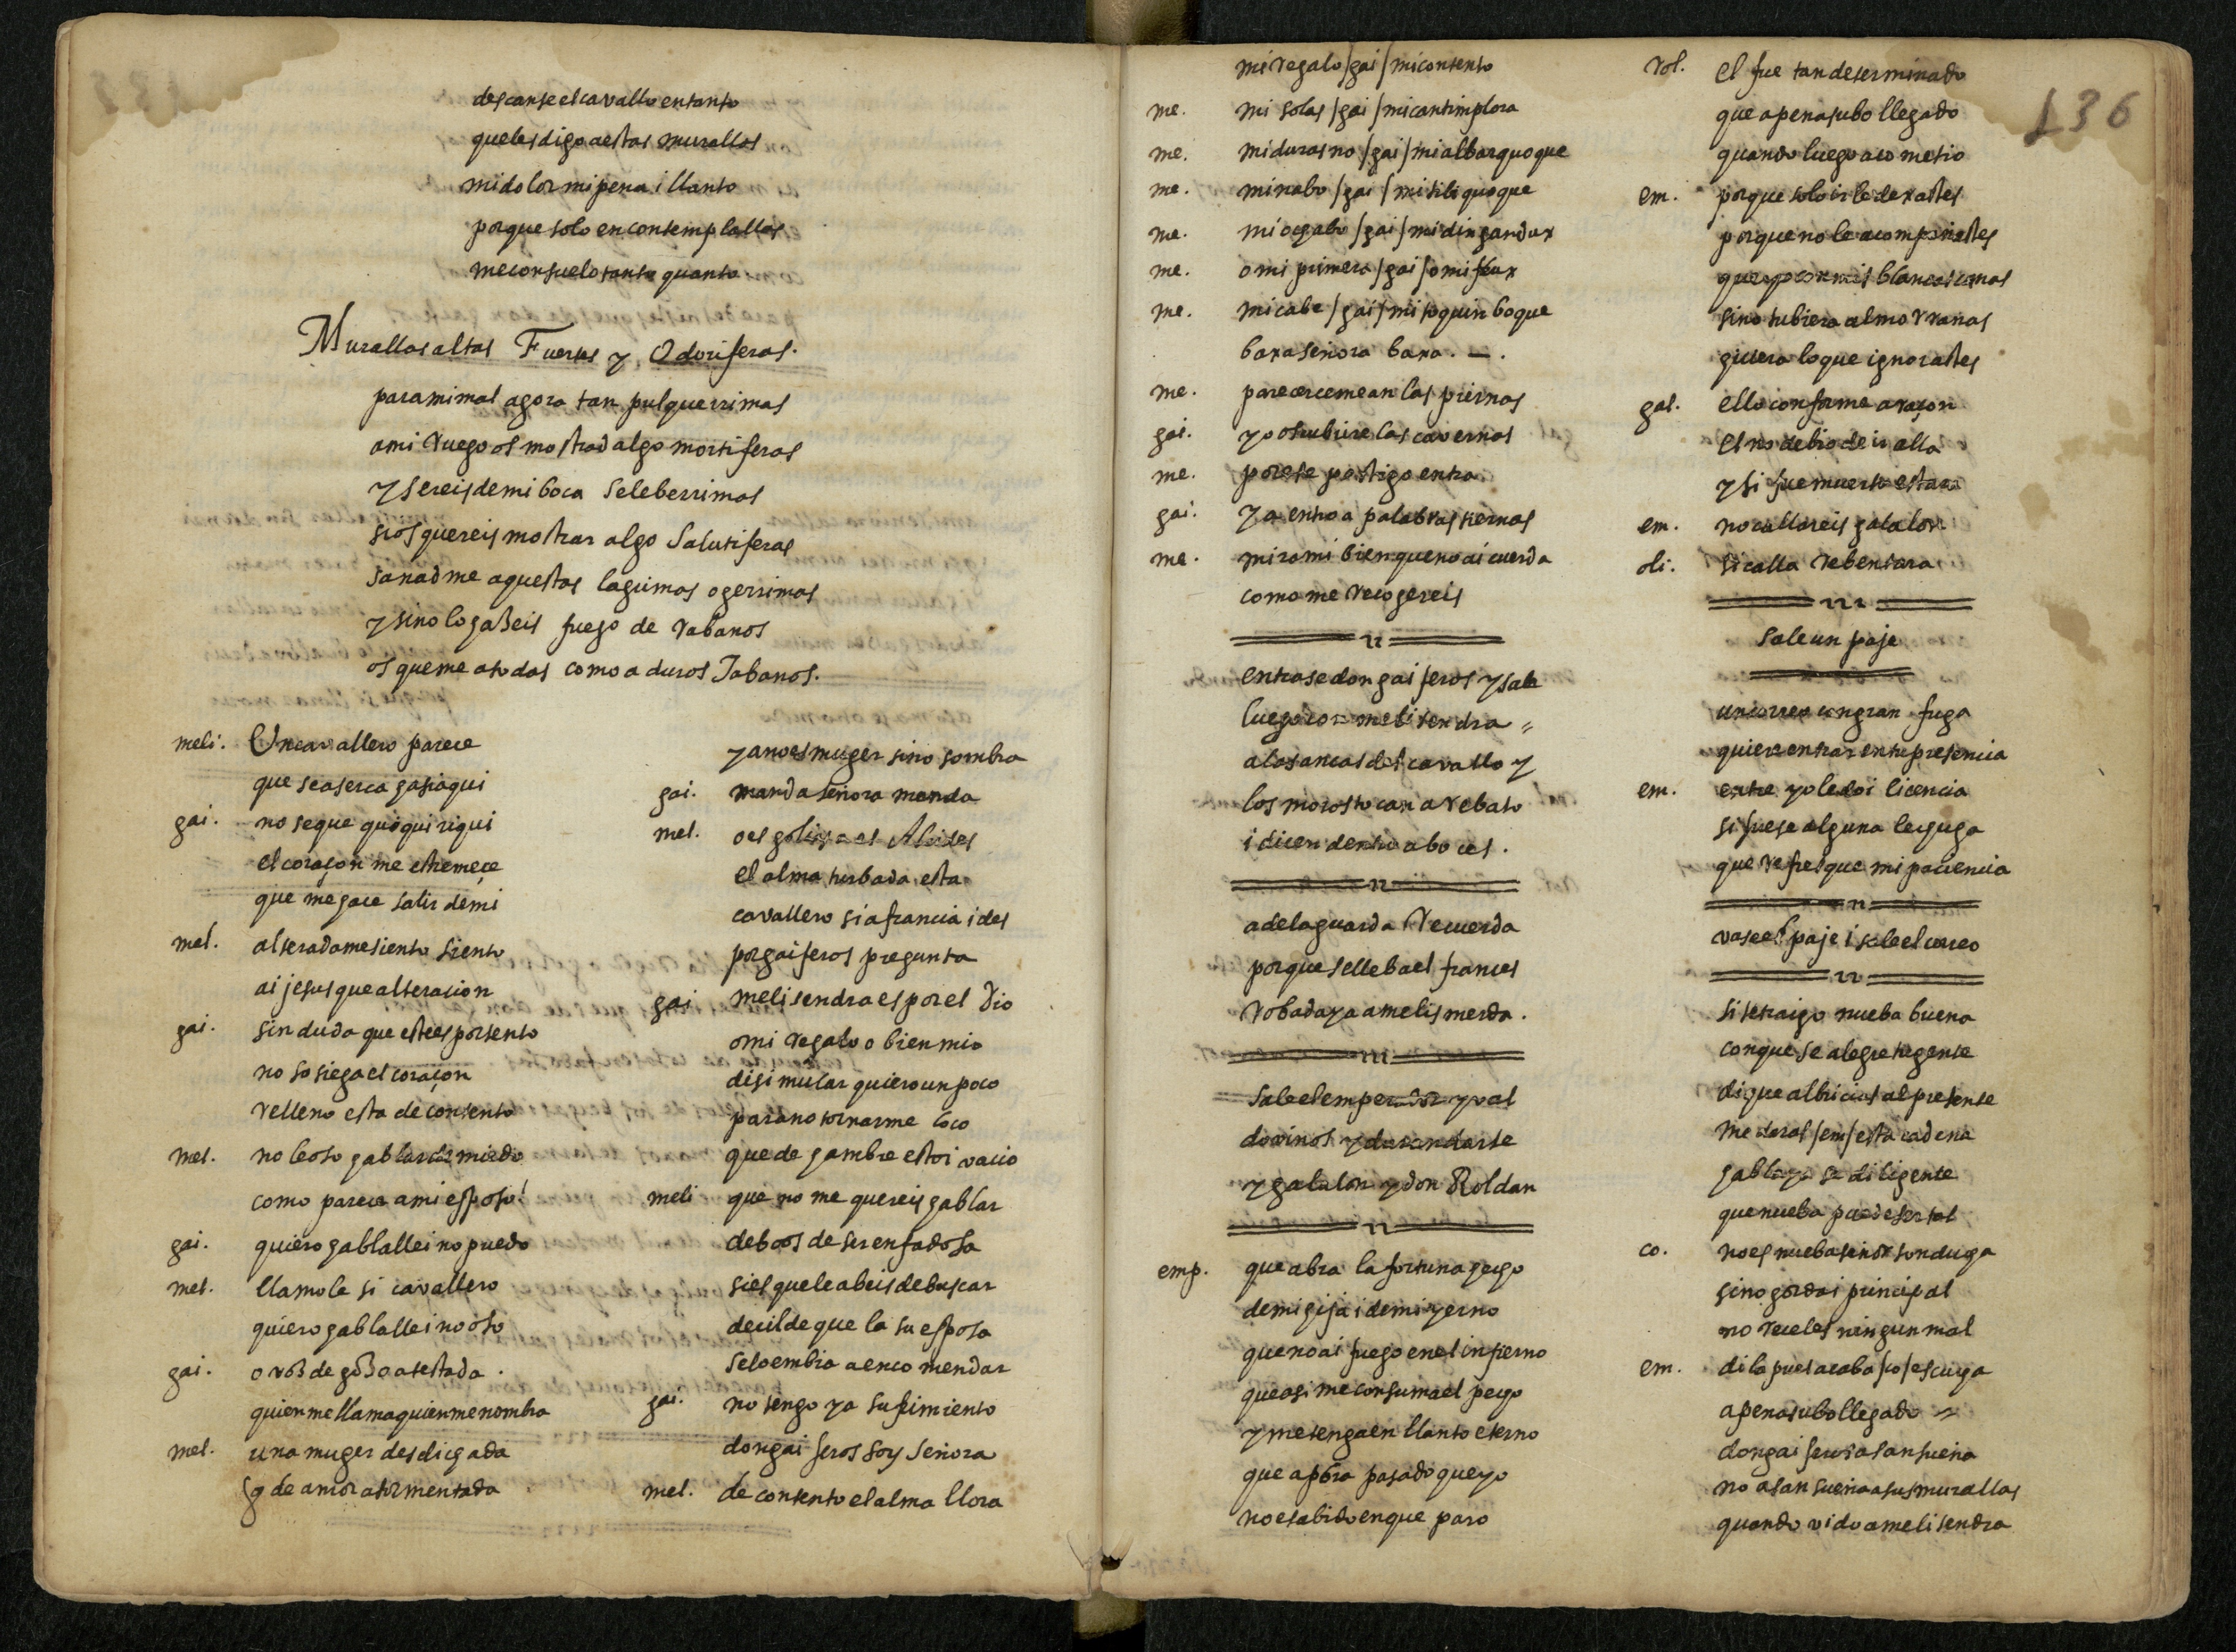 descanse el cavallo en tanto
que les digo a estas murallas
mi dolor mi pena i llanto
porque solo en contemplallas
me consuelo tanto quanto
Murallas altas Fuertes y Odoriferas.
para mi mal agora tan pulquerrimas
a mi ruego os mostrad algo mortiferas
y sereis de mi boca seleberrimas
si os quereis mostrar algo salutiferas
sanadme aquestas lagrimas ogerrimas
y si no lo gaseis fuego de rabanos
os queme a todas como a duros Tabanos.
meli. Un cavallero parece
que se aserca gasia qui
gai. no se que quiqui riqui
el coraçon me estremeçe
que me gace salir de mi
mel. alterada me siento siento
ai jesus que alteracion
gai. sin duda que este es portento
no sosiega el coraçon
relleno esta de contento
mel. no le oso gablar de miedo
como parece a mi esposo!
gai. quiero gablalle i no puedo
mel. llamole si cavallero
quiero gablalle i no oso
gai. o vos de goso atestada.
quien me llama quien me nombra
mel. una muger desdicgada
g de amor atormentada
y a no es muger sino sombra
gai. manda señora manda
mel. el alma turbada esta
cavallero si a francia ides
por gaiferos pregunta
gai melisendra es por el Dio
o mi regalo o bien mio
disimular quiero un poco
para no tornarme loco
que de gambre estoi vacio
meli que no me quereis gablar
debeos de ser enfadosa
si es que le abeis de buscar
decilde que la su esposa
se lo embia a encomendar
gai. no tengo ya sufrimiento
don gaiferos soy señora
mel. de contento el alma llora
mi regalo / gai / mi contento
me. mi solas / gai / mi cantimplora
me. mi durasno / gai / mi albarquoque
me. mi nabo / gai / mi siliquoque
me. mi ocgabo / gai / mi dingandux
me. o mi primera / gai / o mi flux
me. mi cabe / gai / mi toquin boque
baxa señora baxa. —.
me. parecerceme an las piernas
gai. yo os cubrire las cavernas
me. por este postigo entra
gai. ya entro a palabras tiernas
me. mira mi bien que no ai cuerda
como me recogereis
entrase don gaiferos y sale
luego con melisendra
a las ancas del cavallo y
los moros tocan a rebato
i dicen dentro a boces.
a de la guarda recuerda
porque se lleba el frances
robada ya a melismerda.
sale el emperador y val
dovinos y durandarte
y galalon y don Roldan
emp. que abra la fortuna gecgo
de mi gija i de mi yerno
que no ai fuego en el infierno
que asi me consuma el pecgo
y me tenga en llanto eterno
que abra pasado que yo
no e sabido en que paro
rol. el fue tan determinado
que apenas ubo llegado
quando luego acometio
em. porque solo ir le dexastes
porque no le acompañastes
que yo con mis blancas canas
si no tubiera almorranas
giciera lo que ignorastes
gal. ello conforme a raçon
el no debio de ir alla
y si fue muerto estara
em. no callareis galalon
oli. si calla rebentara
sale un paje
un correo con gran fuga
quiere entrar en tu presencia
em. entre yo le doi licencia
si fuese alguna lecguga
que refresque mi paciencia
vase el paje i sale el correo
si te traigo nueba buena
con que se alegre tu gente
di que albricias al presente
me daras / em / esta cadena
gabla ya se diligente
que nueba puede ser tal
co. no es nueba señor sonduga
sino gorda i principal
no receles ningun mal
em. dilo pues acaba / co / escucga
apenas ubo llegado
don gaiferos a sansueña
no a sansueña a sus murallas
quando vido a melisendra
136